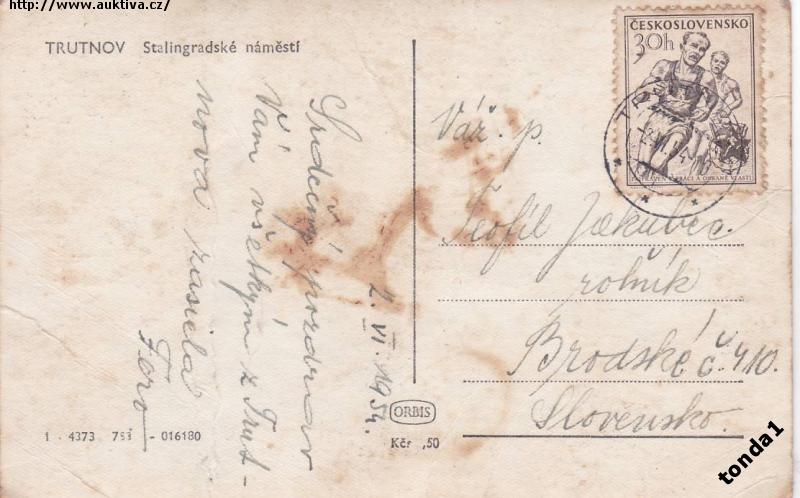 http://www.auktiva.cz/
TRUTNOV Stalingradské náměstí
Srdečný pozdrav
Vám všetkým z Trut-
nova zasiela
Fero
2. VI. 1954.
ČESKOSLOVENSKO
30h
PRÁCI A OBRANĚ VLASTI
Váž. p.
Teofil Jakubec
rolník
Brodské č. 410.
Slovensko.
ORBIS
Kčs ,50
1 - 4373 753 - 016180
tonda1